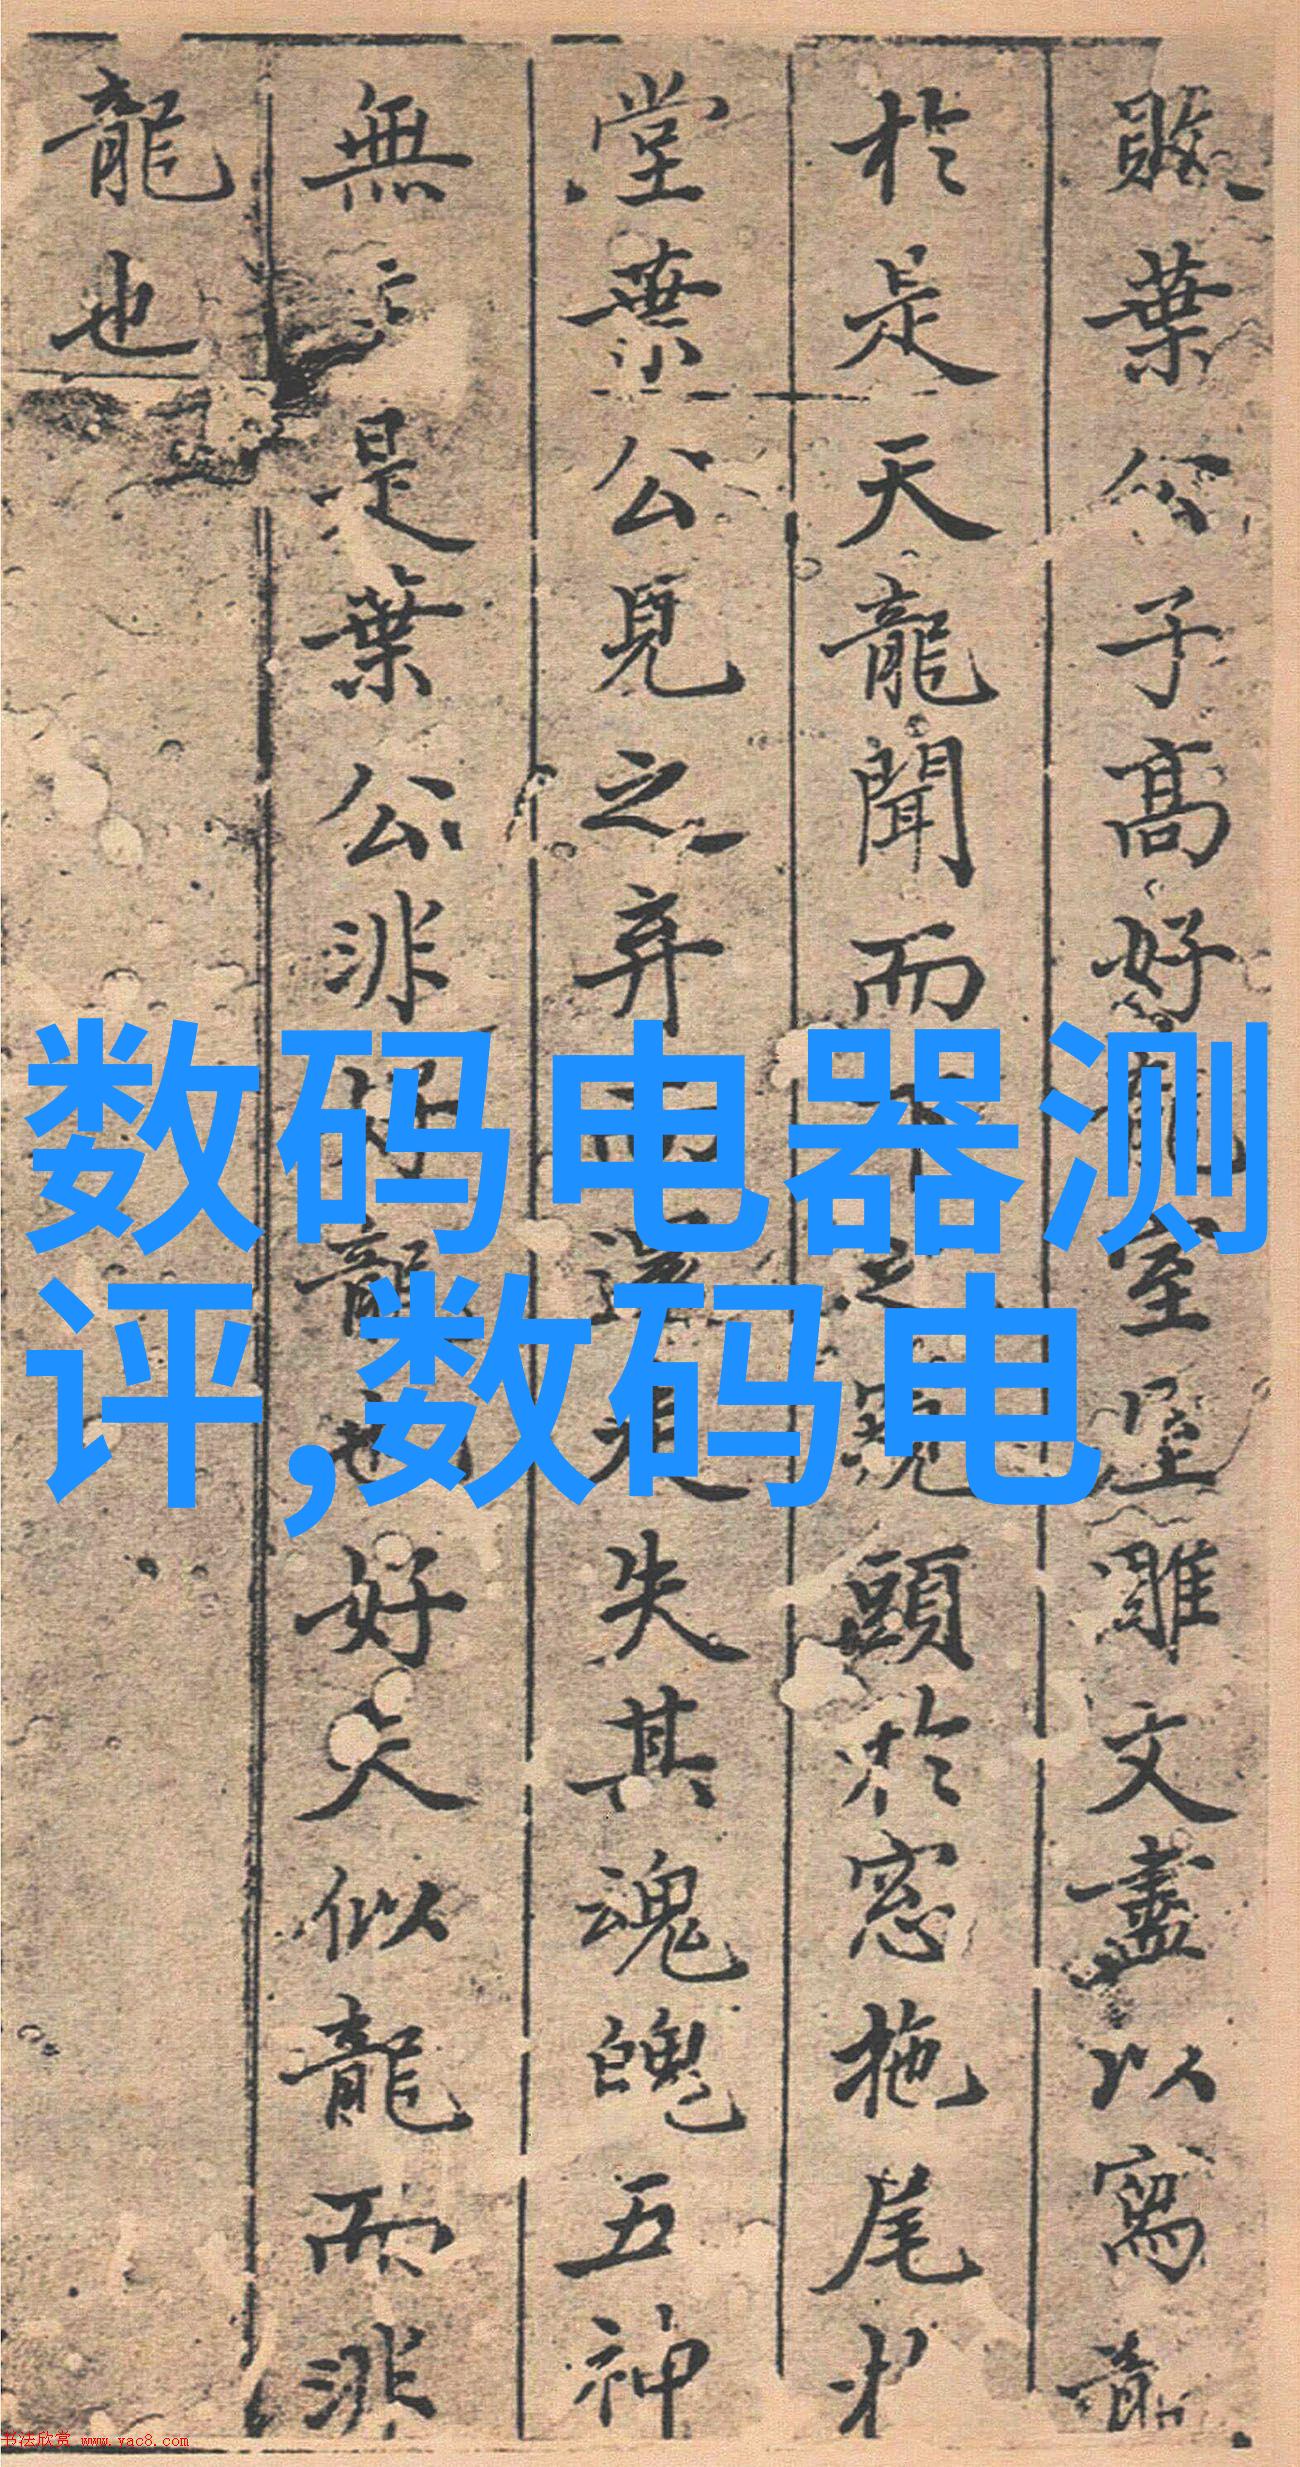 敗葉公子高好龍室屋雕文盡以寫龍
於是天龍聞而下之窺頭於窓拖尾於
堂葉公見之弃而還走失其魂魄五神
無主是葉公非好龍也好夫似龍而非
龍也
数码电器测
评,数码电
书法欣赏 www.yac8.com